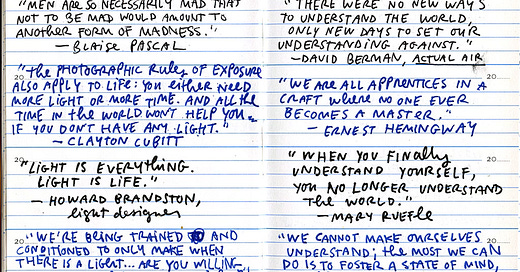 "MEN ARE SO NECESSARILY MAD THAT
NOT TO BE MAD WOULD AMOUNT TO
ANOTHER FORM OF MADNESS."
— BLAISE PASCAL
20
"THE PHOTOGRAPHIC RULES OF EXPOSURE
ALSO APPLY TO LIFE: YOU EITHER NEED
MORE LIGHT OR MORE TIME. AND ALL THE
TIME IN THE WORLD WON'T HELP YOU
IF YOU DON'T HAVE ANY LIGHT."
— CLAYTON CUBITT
20
"LIGHT IS EVERYTHING.
LIGHT IS LIFE."
— HOWARD BRANDSTON,
light designer
20
"WE'RE BEING TRAINED AND
CONDITIONED TO ONLY MAKE WHEN
THERE IS A LIGHT... ARE YOU WILLING
"THERE WERE NO NEW WAYS
TO UNDERSTAND THE WORLD,
ONLY NEW DAYS TO SET OUR
UNDERSTANDING AGAINST."
— DAVID BERMAN, ACTUAL AIR
20
"WE ARE ALL APPRENTICES IN A
CRAFT WHERE NO ONE EVER
BECOMES A MASTER."
— ERNEST HEMINGWAY
"WHEN YOU FINALLY
20
UNDERSTAND YOURSELF,
YOU NO LONGER UNDERSTAND
THE WORLD."
— MARY RUEFLE
"WE CANNOT MAKE OURSELVES
20
UNDERSTAND; THE MOST WE CAN
DO IS TO FOSTER A STATE OF MIND,